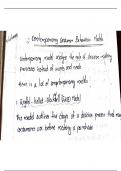 Contemporary Consumer Behaviour Models
Contemporary model analyse the role of decision making
processes instead of wants and needs
There is a lot of contemporary models
1. Engel - Kollat - Blackwell (EKB) Model
This model outlines five stages of a decision process that most
consumers use before making a purchase